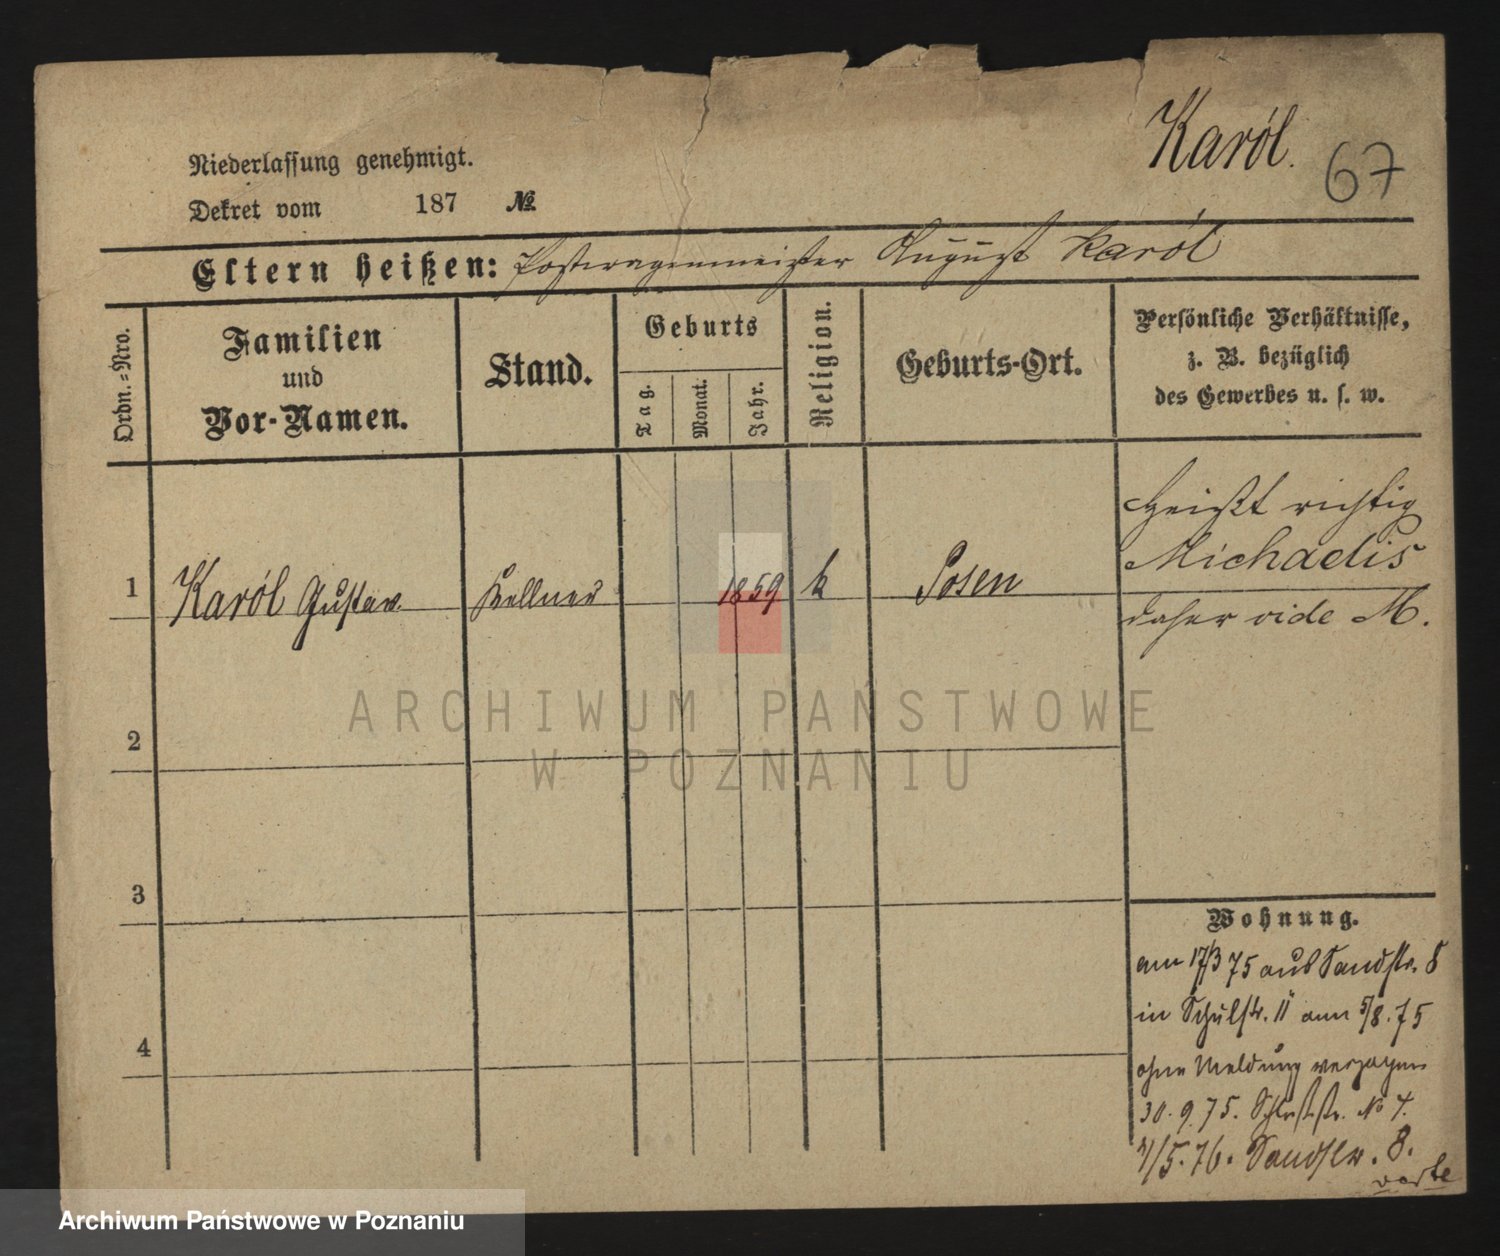 Karól.
67
Niederlassung genehmigt.
Dekret vom 187 №
Eltern heißen: Postwagenmeister August Karól
Ordn.=Nro.
Familien
und
Vor-Namen.
Stand.
Geburts
Tag.
Monat.
Jahr.
Religion.
Geburts-Ort.
Persönliche Verhältnisse,
z. B. bezüglich
des Gewerbes u. s. w.
1 Karól Gustav Kellner 1859 k Posen
heißt richtig
Michaelis
daher vide M.
ARCHIWUM PAŃSTWOWE
W POZNANIU
2
3
4
Wohnung.
am 17/3 75 aus Sandstr. 8
in Schulstr. 11 am 5/8. 75
ohne Meldung verzogen
30. 9. 75. No 4.
/5. 76. Sandstr. 8.
Archiwum Państwowe w Poznaniu